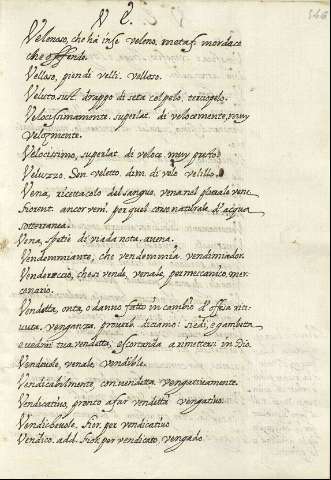 V E.
Velenoso, che hà in se veleno, metaf. mordace
che offende.
Velloso, pien di velli. velloso.
Veluto. sust. drappo di seta col pelo, terciopelo.
Velocissimamente. superlat. di velocemente, muy
velozmente.
Velocissimo, superlat. di veloce. muy
Veluzzo. Son veletto, dim. di velo velillo.
Vena, ricettacolo del sangue, vena nel plurale vene.
fiorent. ancor veni. per quel corso naturale d'acqua
sotterranea.
Vena, spetie di viada nota. avena.
Vendemmiante, che vendemmia vendimiador.
Vendereccio, che si vende, venale, per meccanico, mer-
cenario.
Vendetta, onta, o danno fatto in cambio d'offesa rice-
vuta, venganza, prover. diciamo: siedi, e gambetta
e vedrai tua vendetta, esortando a rimettersi in Dio.
Vendevole, venale, vendible.
Vendicabilmente, con vendetta vengativamente.
Vendicativo, pronto a far vendetta vengativo.
Vendichevole. fior. per vendicativo
Vendico. add. fior. per vendicato, vengado